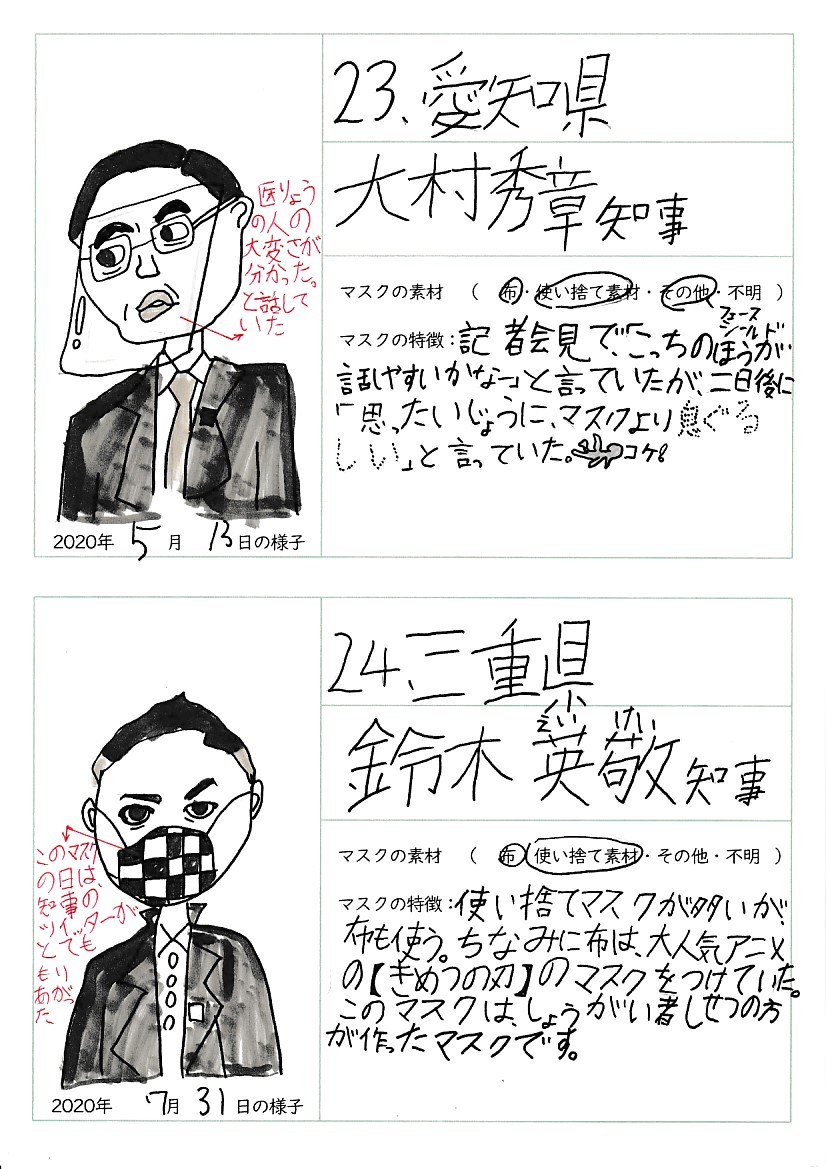 23、愛知県
大村秀章知事
医りょう
の人の
大変さが
分かった。
と話して
いた
マスクの素材　（　布・使い捨て素材・その他・不明　）
フェース
シールド
マスクの特徴：記者会見で、「こっちのほうが
話しやすいかな〜」と言っていたが、二日後に
「思ったいじょうに、マスクより息ぐる
しい」と言っていた。コケ!
2020年 5 月 13日の様子
24、三重県
えい けい
鈴木英敬知事
マスクの素材　（　布・使い捨て素材・その他・不明　）
このマスク
の日は、
知事の
ツイッターが
とても
もり
あがっ
た
マスクの特徴：使い捨てマスクが多いが
布も使う。ちなみに布は、大人気アニメ
の【きめつの刃】のマスクをつけていた。
このマスクは、しょうがい者しせつの方
が作ったマスクです。
2020年 7月 31日の様子